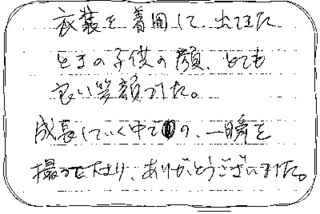 衣装を着用して出てきた
ときの子供の顔、とても
良い笑顔でした。
成長していく中での、一瞬を
撮って下さり、ありがとうございました。